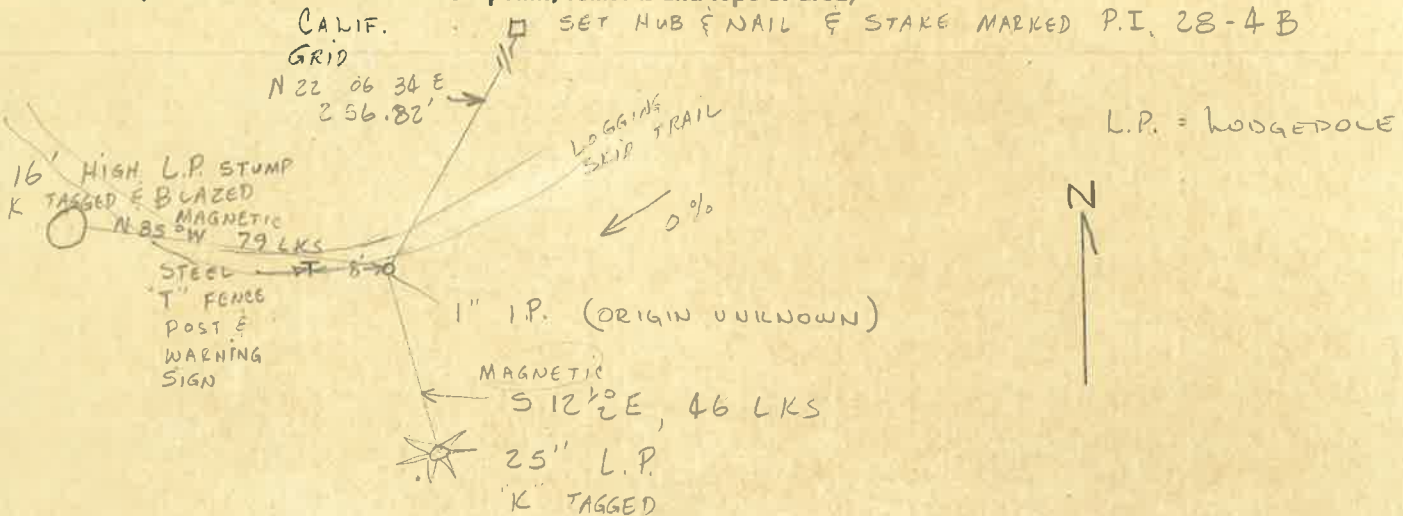 CALIF.
GRID
N 22 06 34 E
256.82'
SET HUB & NAIL & STAKE MARKED P.I. 28-4 B
LOGGING
SKIP TRAIL
L.P. = LODGEPOLE
16' HIGH L.P. STUMP
K TAGGED & BLAZED
MAGNETIC
N 85° W 79 LKS
0%
N
STEEL T 8'
"T" FENCE
POST &
WARNING
SIGN
1" I.P. (ORIGIN UNKNOWN)
MAGNETIC
S 12 1/2° E, 46 LKS
25" L.P.
"K" TAGGED